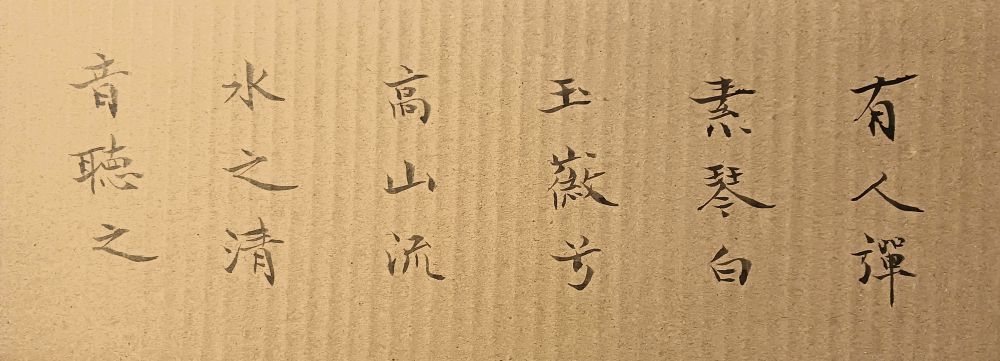 有人彈
素琴白
玉薇兮
高山流
水之清
音聴之